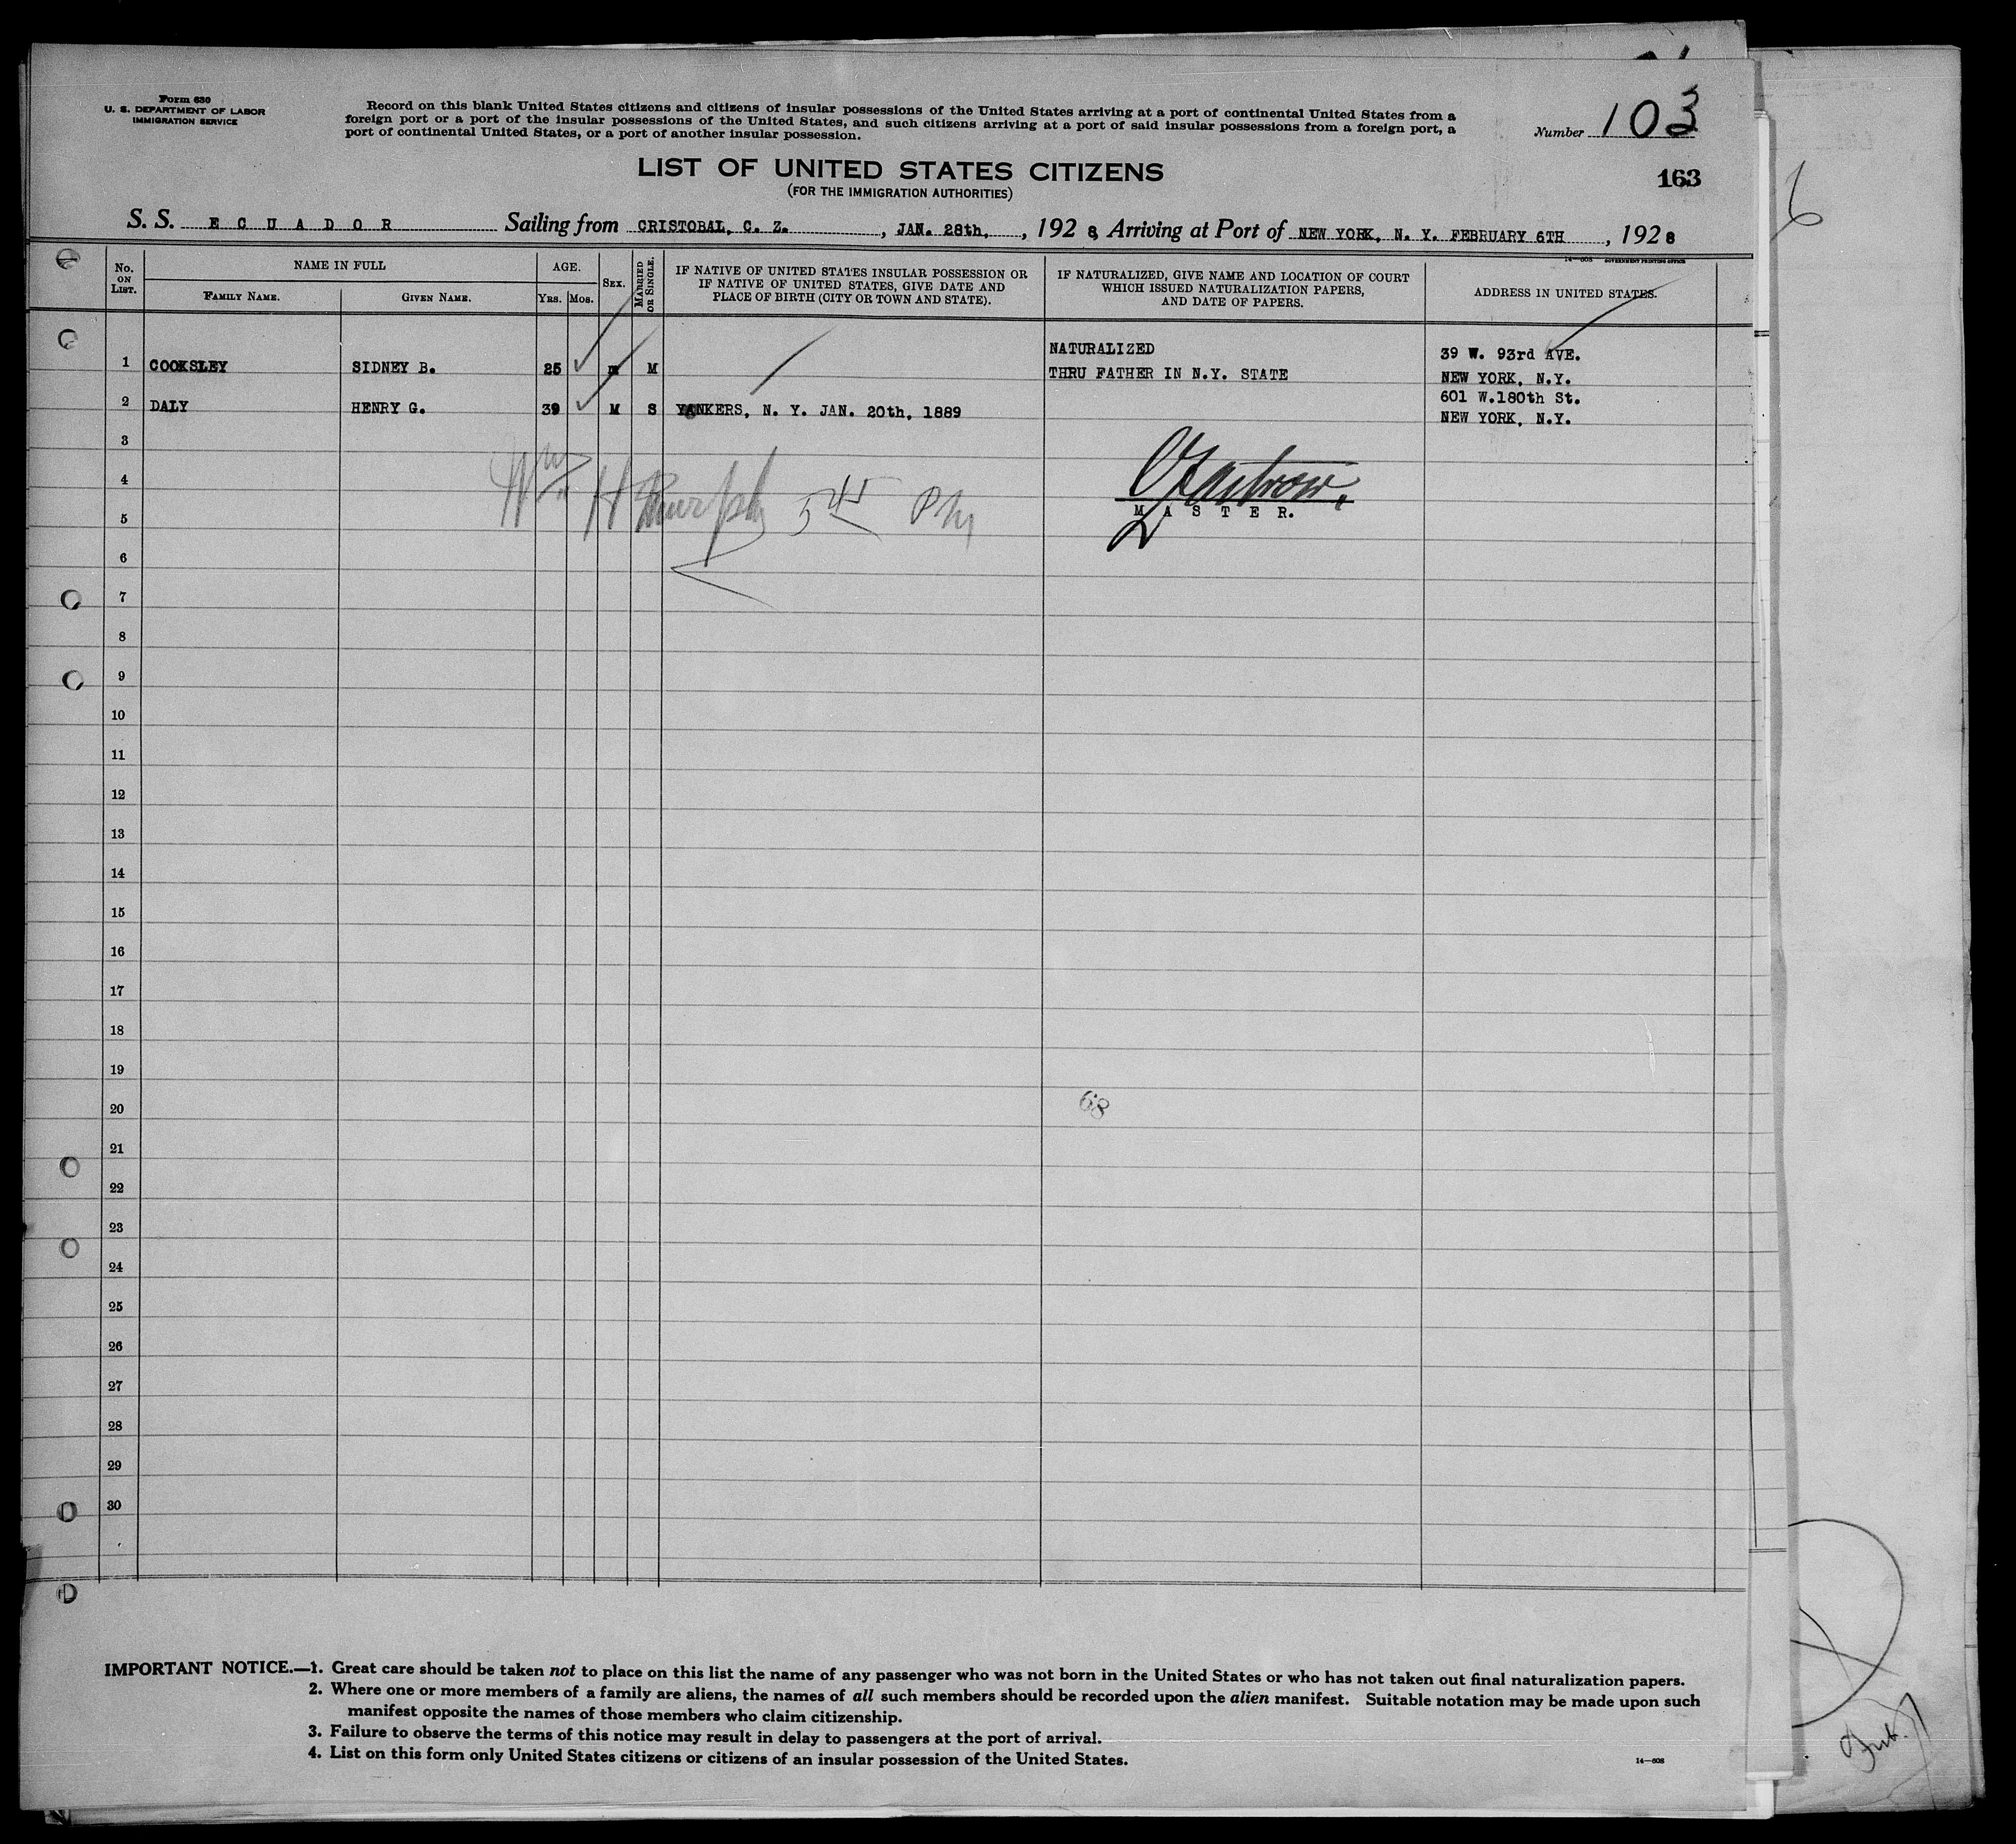 Form 630
U. S. DEPARTMENT OF LABOR
IMMIGRATION SERVICE
Record on this blank United States citizens and citizens of insular possessions of the United States arriving at a port of continental United States from a
foreign port or a port of the insular possessions of the United States, and such citizens arriving at a port of said insular possessions from a foreign port, a
port of continental United States, or a port of another insular possession.
Number 103
LIST OF UNITED STATES CITIZENS
163
(FOR THE IMMIGRATION AUTHORITIES)
S. S. ECUADOR Sailing from CRISTOBAL, C. Z. , JAN. 28th. , 1928, Arriving at Port of NEW YORK, N. Y. FEBRUARY 6TH , 1928
14—608 GOVERNMENT PRINTING OFFICE
No. ON LIST.
NAME IN FULL
FAMILY NAME.
GIVEN NAME.
AGE.
YRS.
MOS.
SEX.
MARRIED OR SINGLE.
IF NATIVE OF UNITED STATES INSULAR POSSESSION OR
IF NATIVE OF UNITED STATES, GIVE DATE AND
PLACE OF BIRTH (CITY OR TOWN AND STATE).
IF NATURALIZED, GIVE NAME AND LOCATION OF COURT
WHICH ISSUED NATURALIZATION PAPERS,
AND DATE OF PAPERS.
ADDRESS IN UNITED STATES.
1 COOKSLEY SIDNEY B. 25 m M
NATURALIZED
THRU FATHER IN N.Y. STATE
39 W. 93rd AVE.
NEW YORK, N.Y.
2 DALY HENRY G. 39 M S YONKERS, N. Y. JAN. 20th, 1889
601 W.180th St.
NEW YORK, N.Y.
3
4
Wm H Murphy 5 45 PM
MASTER.
5
6
7
8
9
10
11
12
13
14
15
16
17
18
19
20
68
21
22
23
24
25
26
27
28
29
30
IMPORTANT NOTICE.—1. Great care should be taken not to place on this list the name of any passenger who was not born in the United States or who has not taken out final naturalization papers.
2. Where one or more members of a family are aliens, the names of all such members should be recorded upon the alien manifest. Suitable notation may be made upon such
manifest opposite the names of those members who claim citizenship.
3. Failure to observe the terms of this notice may result in delay to passengers at the port of arrival.
4. List on this form only United States citizens or citizens of an insular possession of the United States.
14—608